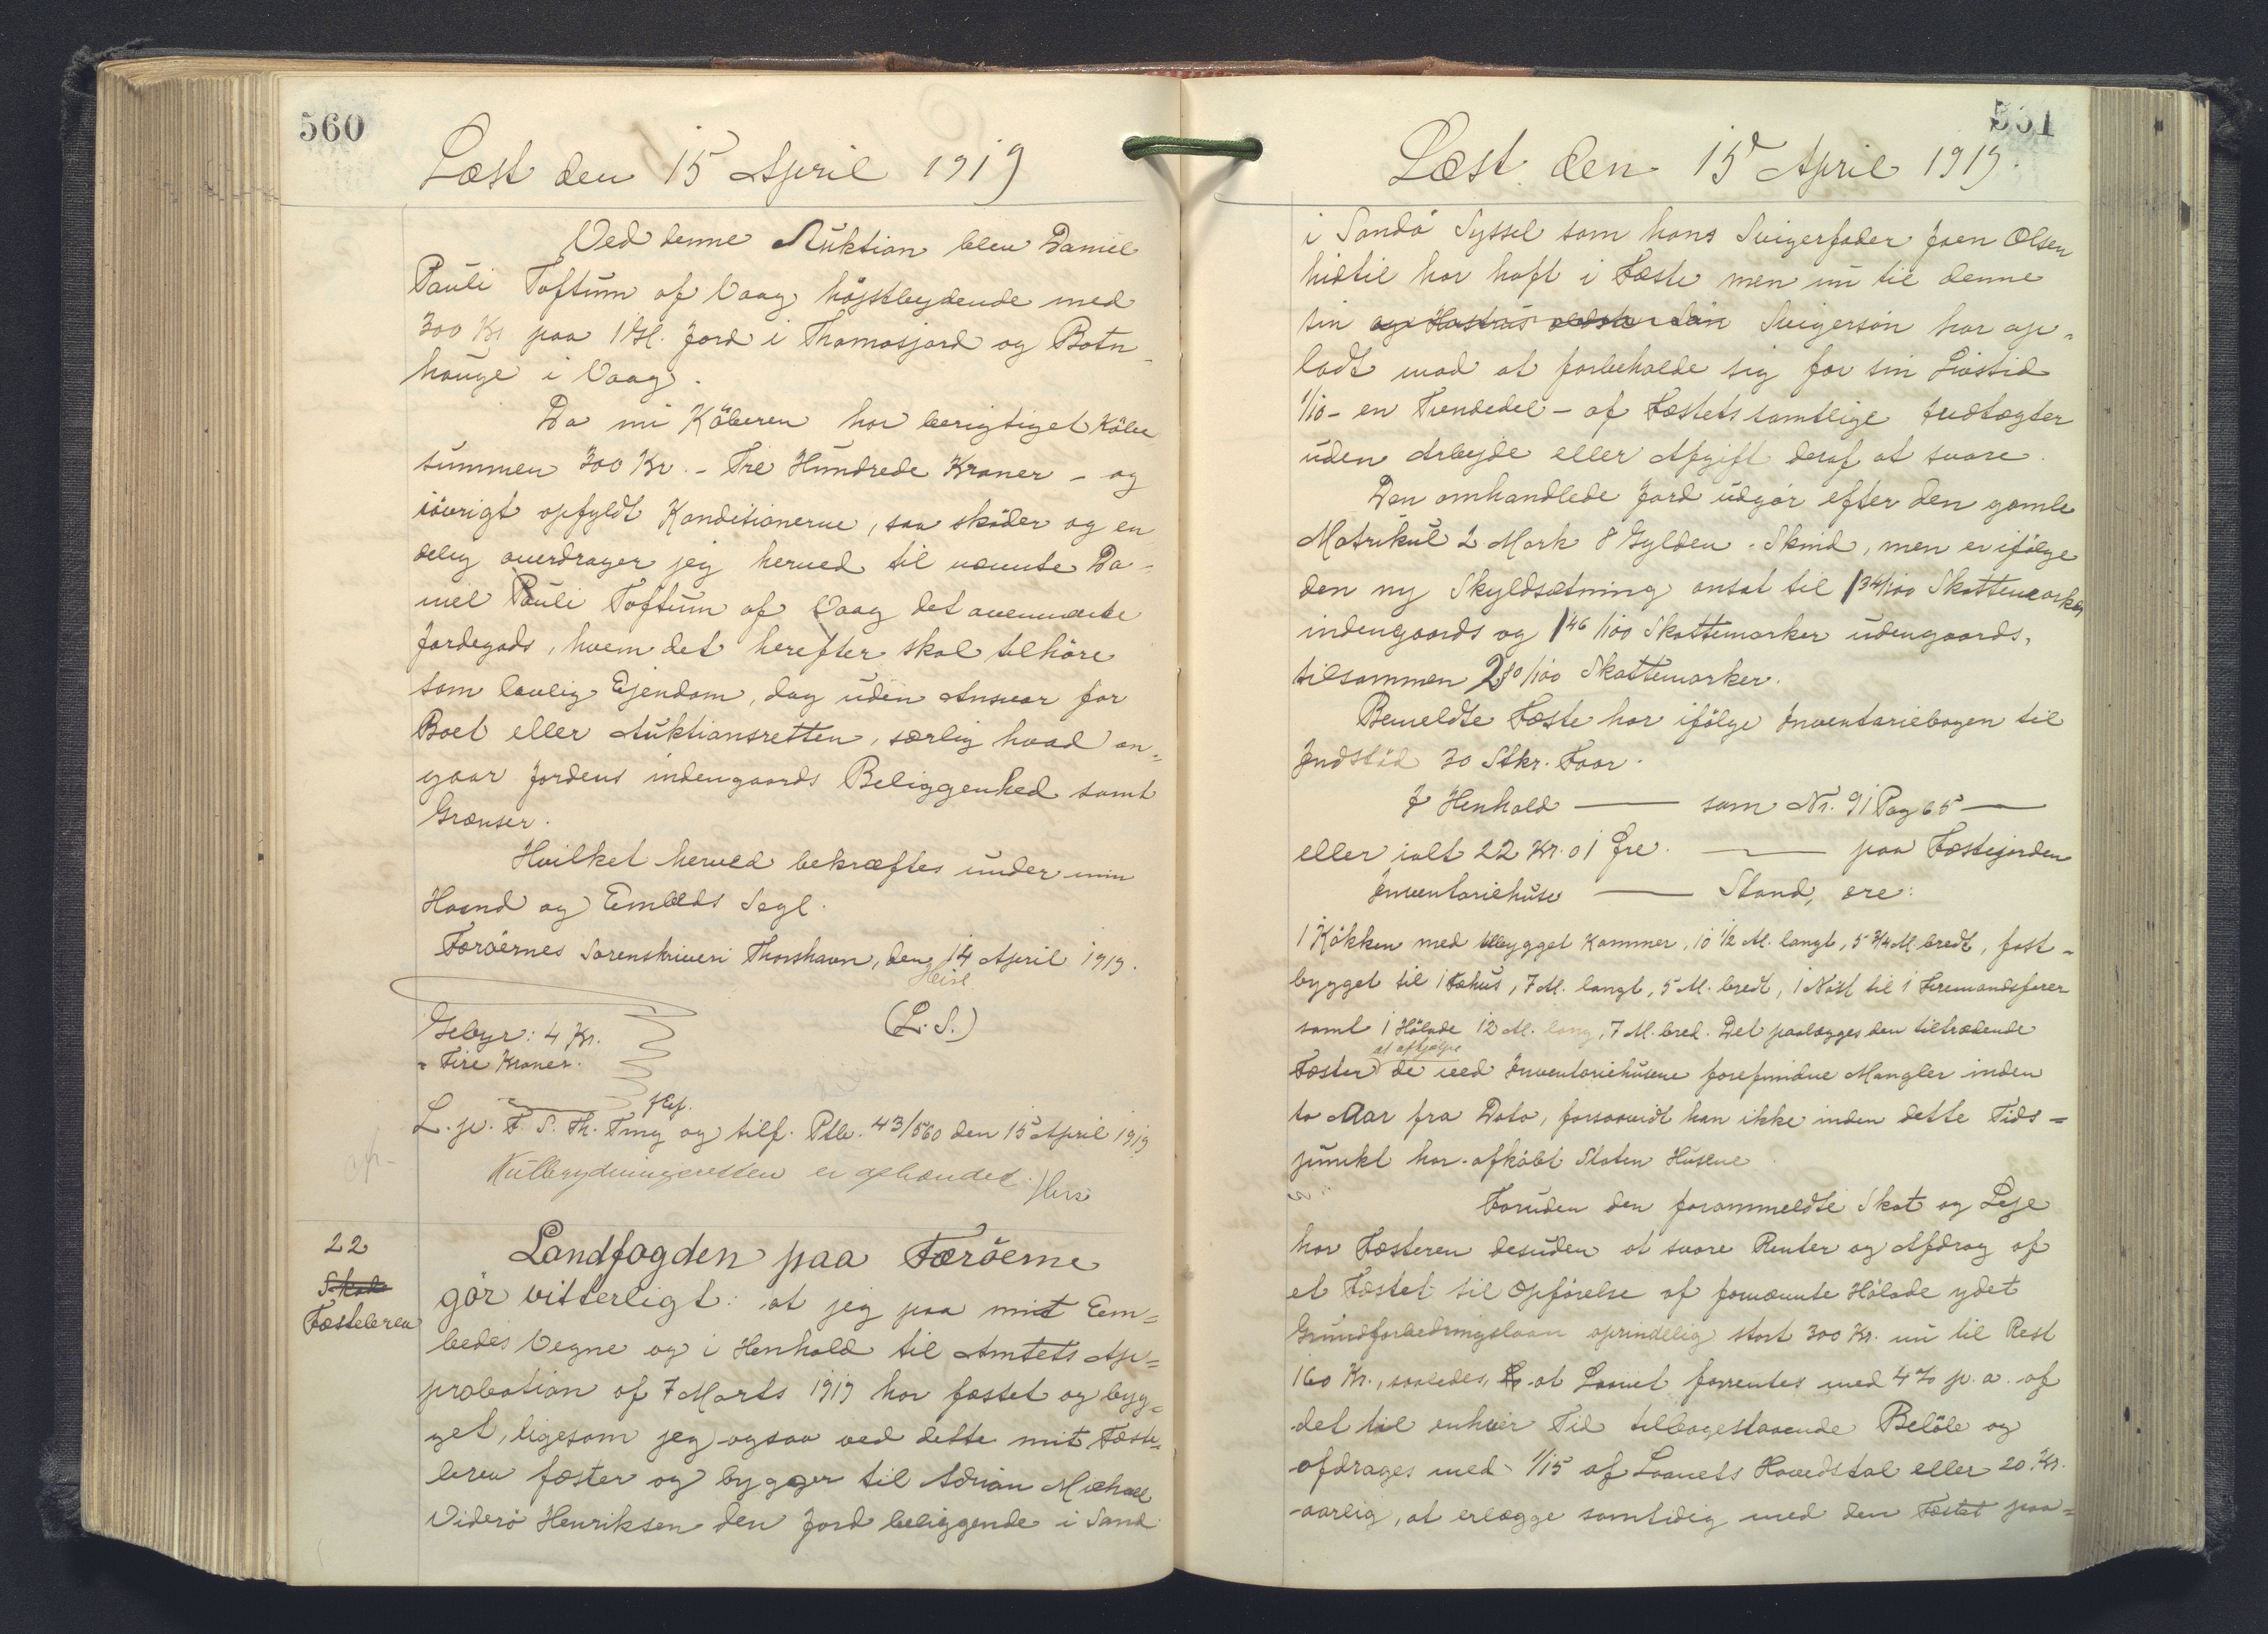 560
Læst den 15 April 1919
Ved denne Auktion blev Daniel
Pauli Toftum af Vaag højstbydende med
300 Kr paa 1 Gl. Jord i Thomasjord og Botn-
hauge i Vaag.
Da nu Köberen har berigtiget Köbe
summen 300 Kr. - Tre Hundrede Kroner - og
iövrigt opfyldt Konditionerne, saa sköder og en
delig overdrager jeg herved til nævnte Da-
niel Pauli Toftum af Vaag det ovennævnte
Jordegods, hvem det herefter skal tilhöre
som lovlig Ejendom, dog uden Ansvar for
Boet eller Auktionsretten, særlig hvad an-
gaar Jordens indengaards Beliggenhed samt
Grænser.
Hvilket herved bekræftes under min
Haand og Embeds Segl.
Færöernes Sorenskriveri Thorshavn, den 14 April 1919.
Heise
(L. S.)
Gebyr: 4 Kr.
- Fire Kroner.
L. p. F. S. Th. Ting og tilf. Ptb. 43/560 den 15 April 1919
Kulbrydningsretten er afhændet.
22
Skøde
Fæstebrev
Landfogden paa Færöerne
gör vitterligt: at jeg paa mit Em=
bedes Vegne og i Henhold til Amtets Ap=
probation af 7 Marts 1919 har fæstet og byg=
get, ligesom jeg ogsaa ved dette mit Fæste-
brev fæster og bygger til Adrian Michael
Viderö Henriksen den Jord beliggende i Sand
561
Læst den 15 April 1919.
i Sandö Syssel som hans Svigerfader Joen Olsen
hidtil har haft i Fæste men nu til denne
sin og Hustrus ældste Sön Svigersön har op-
ladt mod at forbeholde sig for sin Livstid
1/10 - en Tiendedel - af Fæstets samtlige Indtægter
uden Arbejde eller Afgift deraf at svare.
Den omhandlede Jord udgör efter den gamle
Matrikul 2 Mark 8 Gylden - Skind, men er ifölge
den ny Skyldsætning ansat til 1 34/100 Skattemarker
indengaards og 1 46/100 Skattemarker udengaards,
tilsammen 2 80/100 Skattemarker.
Bemeldte Fæste har ifölge Inventariebogen til
Indstöd 30 Stkr. Faar.
I Henhold — som Nr. 91 Pag 65 —
eller ialt 22 Kr. 01 Øre. — paa Fæstejorden
Inventariehuse — Stand, ere:
1 Kökken med tilbygget Kammer, 10 1/2 M. langt, 5 3/4 M. bredt, fast-
bygget til 1 Fæhus, 7 M. langt, 5 M. bredt, 1 Nöst til 1 Firemandsfarer
samt 1 Hölade 12 M. lang, 7 M. bred. Det paalægges den tiltrædende
at afhjælpe
Fæster de ved Inventariehusene forefundne Mangler inden
to Aar fra Dato, forsaavidt han ikke inden dette Tids=
punkt har afköbt Staten Husene
Foruden den forommeldte Skat og Leje
har Fæsteren desuden at svare Renter og Afdrag af
et Fæstet til Opförelse af fornævnte Hölade ydet
Grundforbedringslaan oprindelig stort 300 Kr. nu til Rest
160 Kr., saaledes, at Laanet forrentes med 4% p. a. af
det til enhver Tid tilbagestaaende Belöb og
afdrages med 1/15 af Laanets Hovedstol eller 20 Kr.
aarlig, at erlægge samtidig med den Fæstet paa=